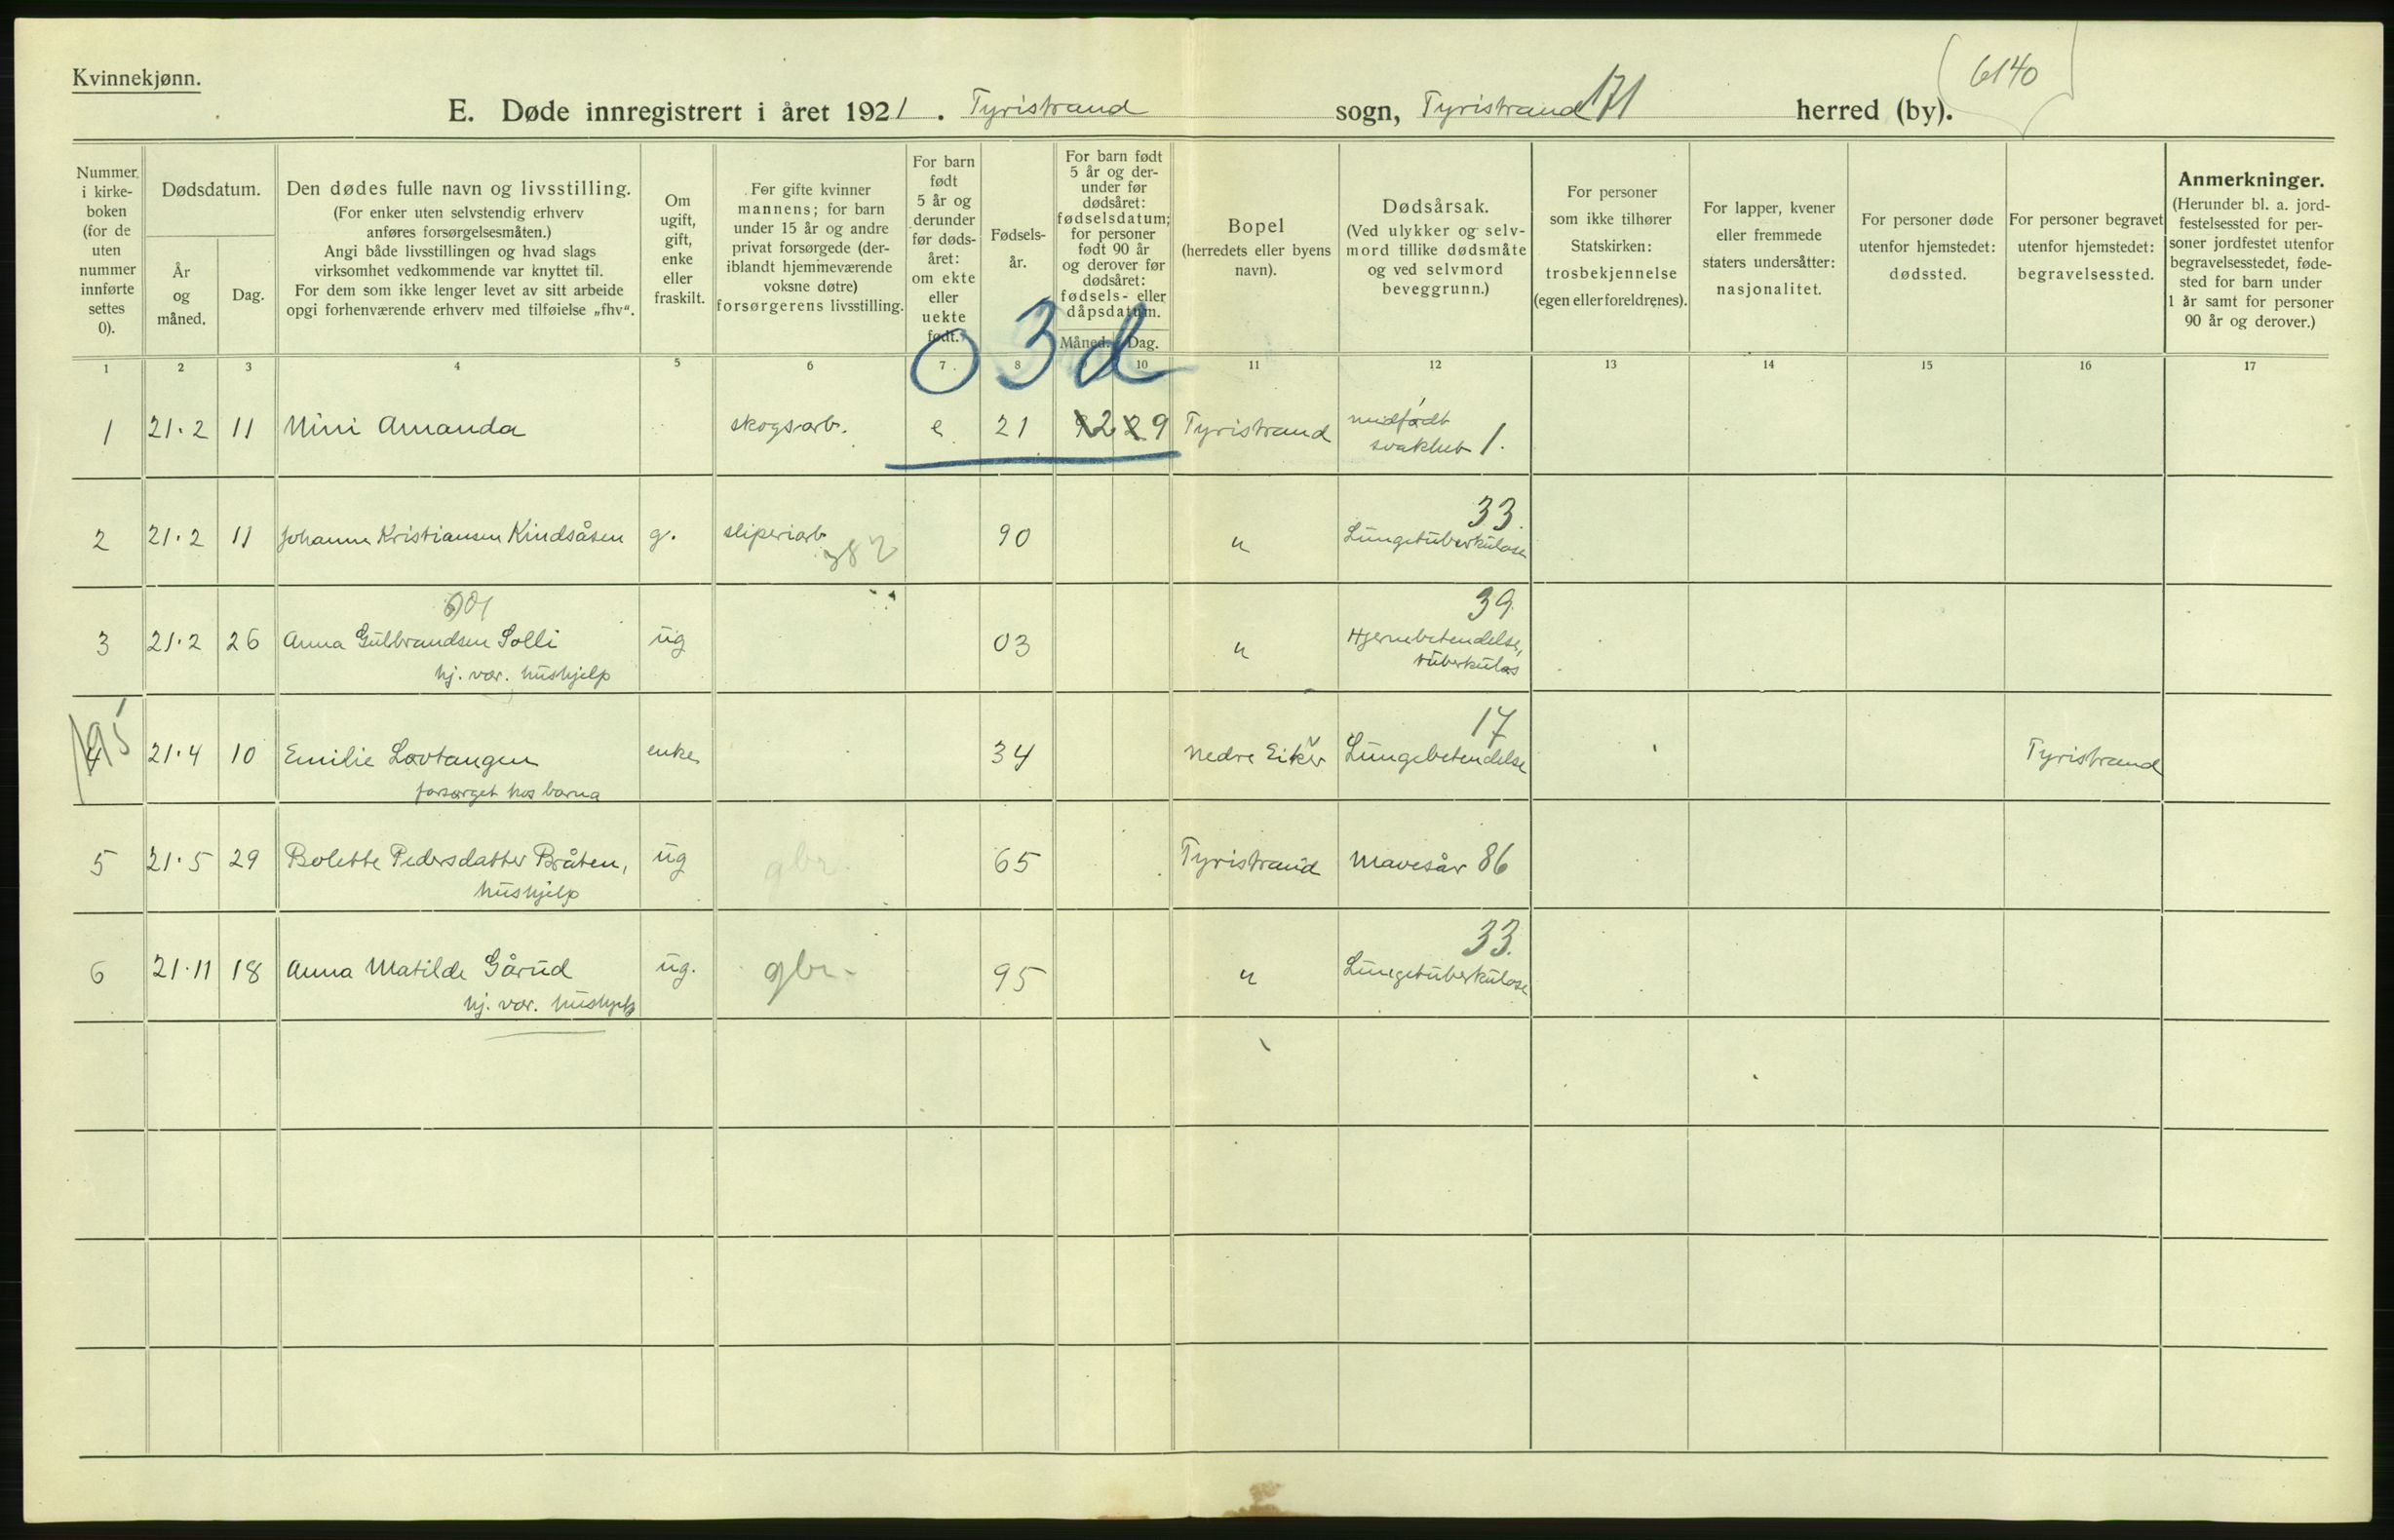 Kvinnekjønn.
6140
E. Døde innregistrert i året 1921. Tyristrand sogn, Tyristrand 171 herred (by).
Nummer i kirke-
boken
(for de
uten
nummer
innførte
settes
0).
Dødsdatum.
År
og
måned.
Dag.
Den dødes fulle navn og livsstilling.
(For enker uten selvstendig erhverv
anføres forsørgelsesmåten.)
Angi både livsstillingen og hvad slags
virksomhet vedkommende var knyttet til.
For dem som ikke lenger levet av sitt arbeide
opgi forhenværende erhverv med tilføielse „fhv“.
Om
ugift,
gift,
enke
eller
fraskilt.
For gifte kvinner
mannens; for barn
under 15 år og andre
privat forsørgede (der-
iblandt hjemmeværende
voksne døtre)
forsørgerens livsstilling.
For barn
født
5 år og
derunder
før døds-
året:
om ekte
eller
uekte
født.
Fødsels-
år.
For barn født
5 år og der-
under før
dødsåret:
fødselsdatum;
for personer
født 90 år
og derover før
dødsåret:
fødsels- eller
dåpsdatum.
Måned. Dag.
Bopel
(herredets eller byens
navn).
Dødsårsak.
(Ved ulykker og selv-
mord tillike dødsmåte
og ved selvmord
beveggrunn.)
For personer
som ikke tilhører
Statskirken:
trosbekjennelse
(egen eller foreldrenes).
For lapper, kvener
eller fremmede
staters undersåtter:
nasjonalitet.
For personer døde
utenfor hjemstedet:
dødssted.
For personer begravet
utenfor hjemstedet:
begravelsessted.
Anmerkninger.
(Herunder bl. a. jord-
festelsessted for per-
soner jordfestet utenfor
begravelsesstedet, føde-
sted for barn under
1 år samt for personer
90 år og derover.)
1 2 3 4 5 6 7 8 9 10 11 12 13 14 15 16 17
03d
1 21.2 11 Mini Amanda skogsarb. e 21 2 9 Tyristrand medfødt
svakhet 1.
33.
2 21.2 11 Johanne Kristiansen Kindsåsen g. sliperiarb 90 " Lungetuberkulose
382
39
3 21.2 26 Anna Gulbrandsen Solli ug 03 " Hjernebetendelse,
hj. vær. hushjelp tuberkuløs
17
4 21.4 10 Emilie Lovtangen enke 34 Nedre Eiker Lungebetendelse Tyristrand
forsørget hos barna
5 21.5 29 Bolette Pedersdatter Bråten, ug gbr. 65 Tyristrand Mavesår 86
hushjelp
33.
6 21.11 18 Anna Matilde Gårud ug. gbr. 95 " Lungetuberkulose
hj. vær. hushjelp